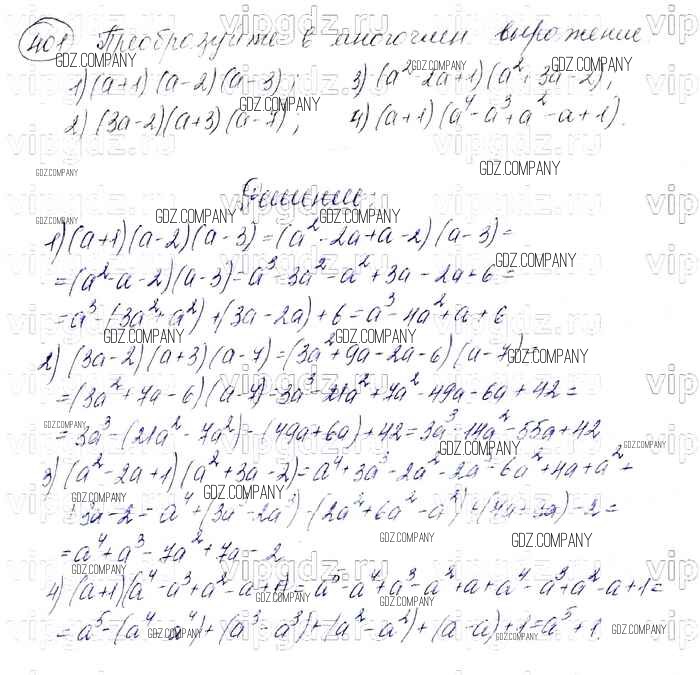 401 Преобразуйте в многочлен выражение
1) (a+1)(a-2)(a-3); 3) (a²-2a+1)(a²+3a-2);
2) (3a-2)(a+3)(a-7); 4) (a+1)(a⁴-a³+a²-a+1).
Решение:
1) (a+1)(a-2)(a-3)=(a²-2a+a-2)(a-3)=
=(a²-a-2)(a-3)=a³-3a²-a²+3a-2a+6=
=a³-(3a²+a²)+(3a-2a)+6=a³-4a²+a+6
2) (3a-2)(a+3)(a-7)=(3a²+9a-2a-6)(a-7)=
=(3a²+7a-6)(a-7)=3a³-21a²+7a²-49a-6a+42=
=3a³-(21a²-7a²)-(49a+6a)+42=3a³-14a²-55a+42
3) (a²-2a+1)(a²+3a-2)=a⁴+3a³-2a²-2a³-6a²+4a+a²+
+3a-2=a⁴+(3a³-2a³)-(2a²+6a²-a²)+(4a+3a)-2=
=a⁴+a³-7a²+7a-2
4) (a+1)(a⁴-a³+a²-a+1)=a⁵-a⁴+a³-a²+a+a⁴-a³+a²-a+1=
=a⁵-(a⁴-a⁴)+(a³-a³)+(a²-a²)+(a-a)+1=a⁵+1.